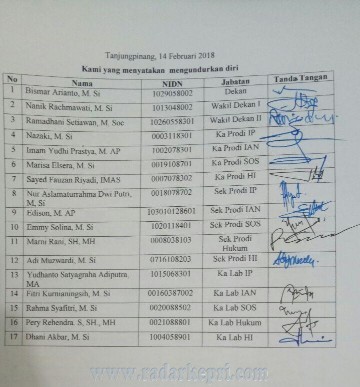 Tanjungpinang, 14 Februari 2018
Kami yang menyatakan mengundurkan diri
No Nama NIDN Jabatan Tanda Tangan
1 Bismar Arianto, M. Si 1029058002 Dekan
2 Nanik Rachmawati, M. Si 1013048002 Wakil Dekan I
3 Ramadhani Setiawan, M. Soc 10260558301 Wakil Dekan II
4 Nazaki, M. Si 0003118301 Ka Prodi IP
5 Imam Yudhi Prastya, M. AP 1002078301 Ka Prodi IAN
6 Marisa Elsera, M. Si 0019108701 Ka Prodi SOS
7 Sayed Fauzan Riyadi, IMAS 0007078302 Ka Prodi HI
8 Nur Aslamaturrahma Dwi Putri, M, Si 0018078702 Sek Prodi IP
9 Edison, M. AP 103010128601 Sek Prodi IAN
10 Emmy Solina, M. Si 1020118401 Sek Prodi SOS
11 Marni Rani, SH, MH 0008038103 Sek Prodi Hukum
12 Adi Murwardi, M. Si 0716108203 Sek Prodi HI
13 Yudhanto Satyagraha Adiputra, MA 1015068301 Ka Lab IP
14 Fitri Kurnianingsih, M. Si 00160387002 Ka Lab IAN
15 Rahma Syafitri, M. Si 0020088502 Ka Lab SOS
16 Pery Rehendra. S, SH., MH 0021088801 Ka Lab Hukum
17 Dhani Akbar, M. Si 1004058901 Ka Lab HI
www.radarkepri.com